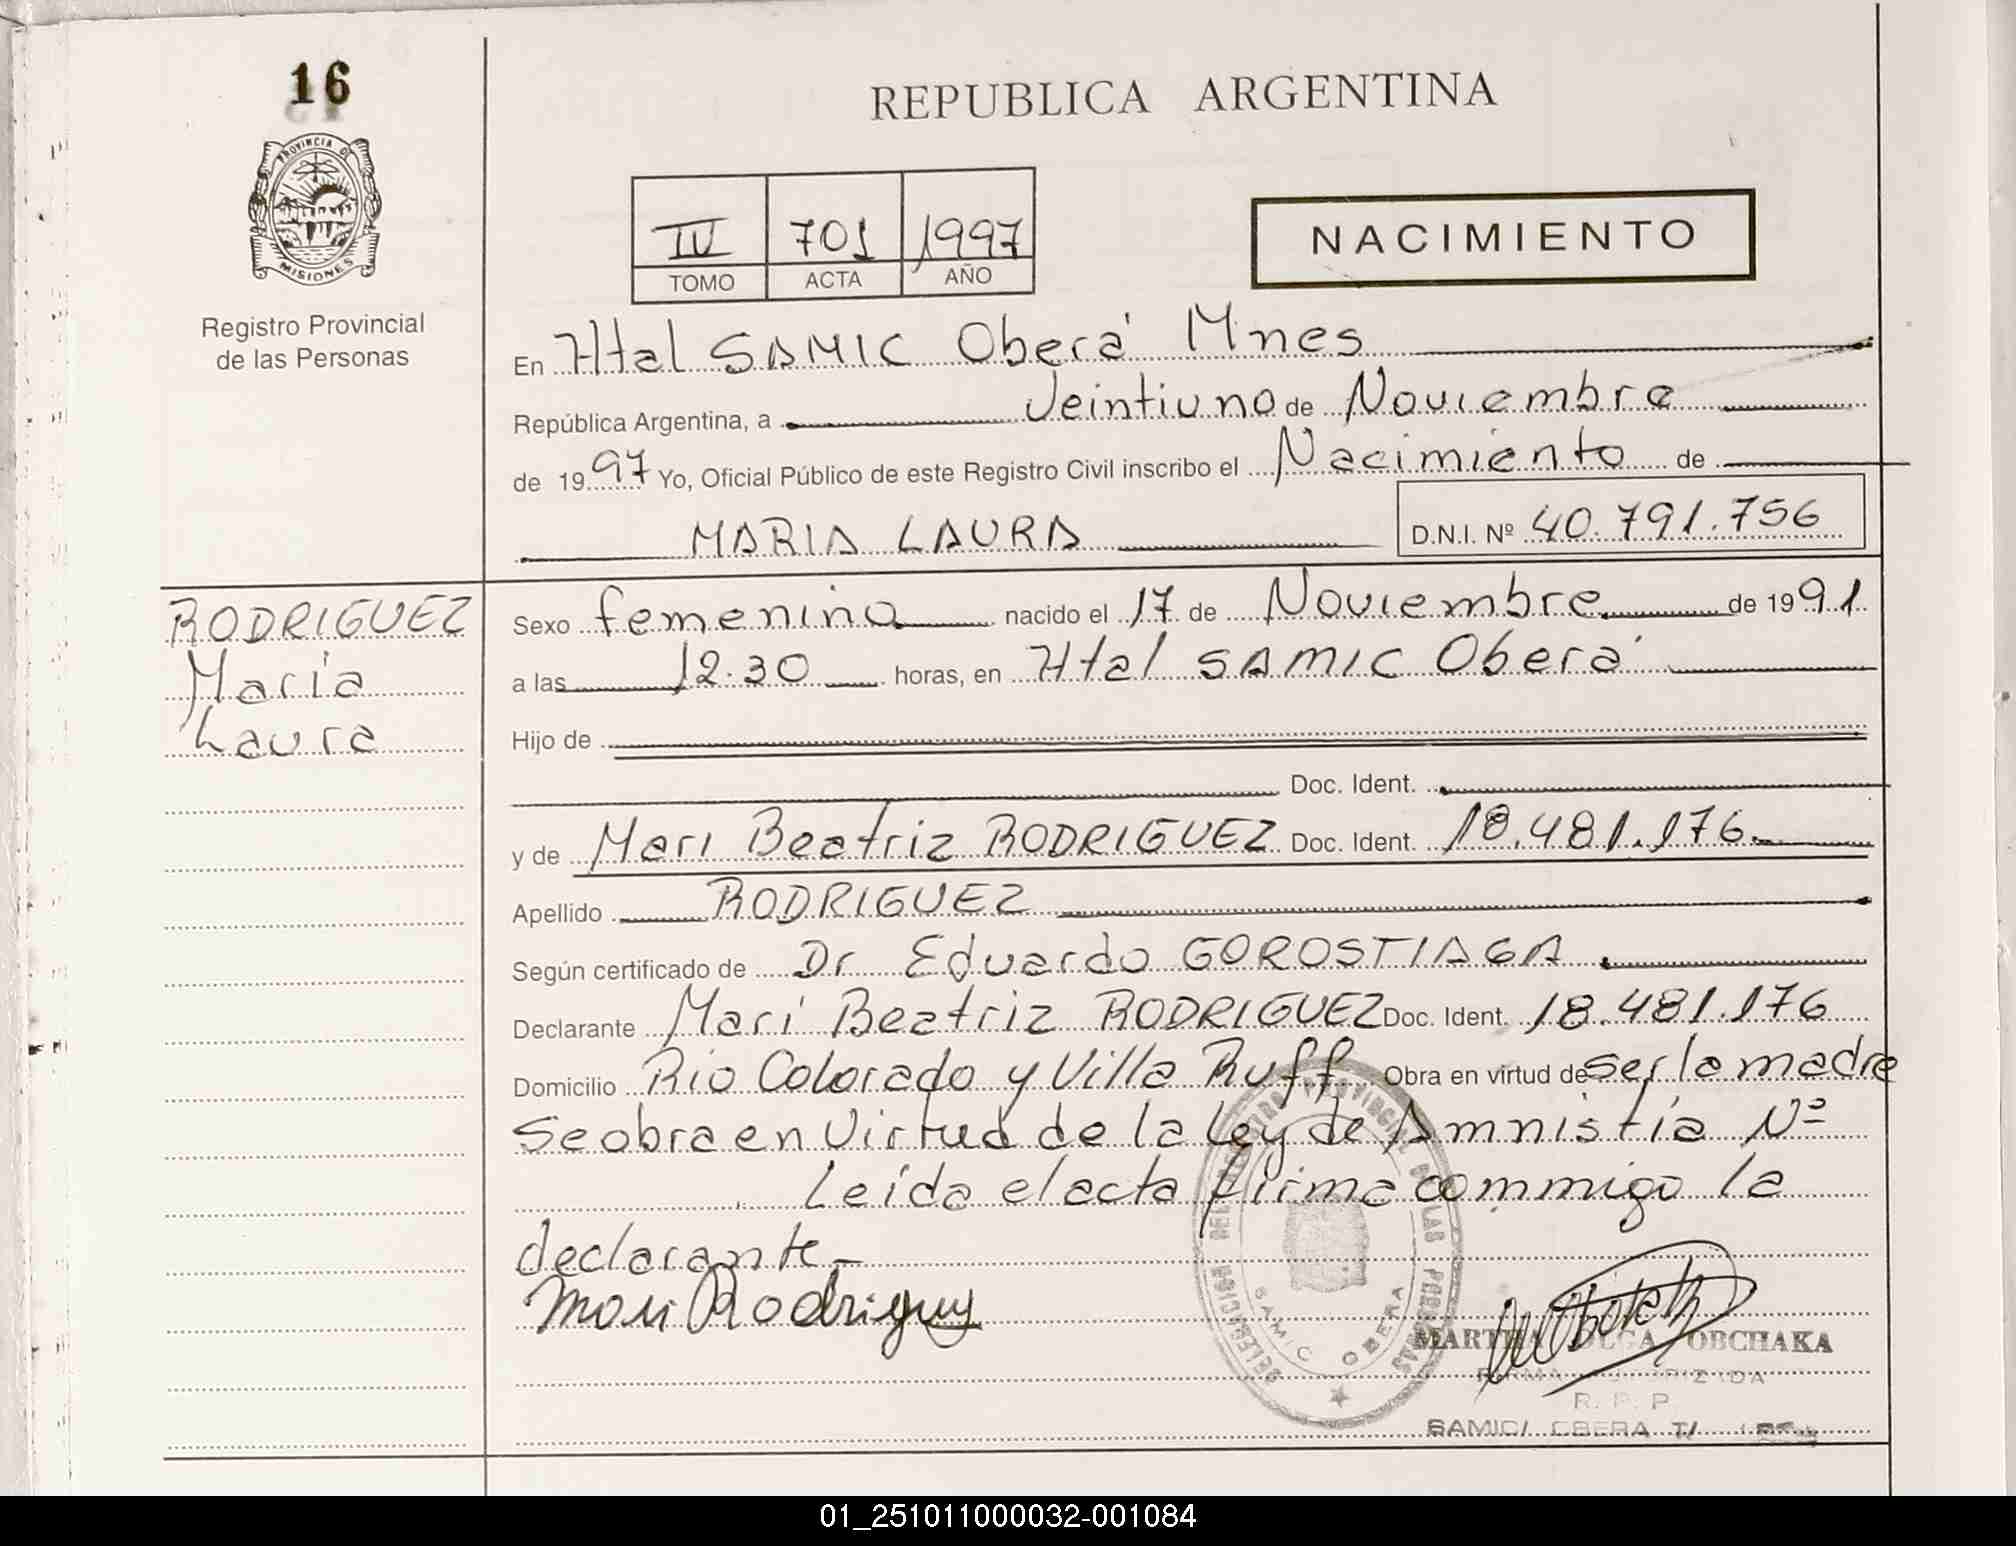 16
REPUBLICA ARGENTINA
PROVINCIA DE
MISIONES
Registro Provincial
de las Personas
IV 701 1997
TOMO ACTA AÑO
NACIMIENTO
En Htal SAMIC Oberá Mnes
República Argentina, a Veintiuno de Noviembre
de 1997 Yo, Oficial Público de este Registro Civil inscribo el Nacimiento de
MARIA LAURA D.N.I. Nº 40.791.756
RODRIGUEZ
Maria
Laura
Sexo femenino nacido el 17 de Noviembre de 1991
a las 12.30 horas, en Htal SAMIC Oberá
Hijo de
Doc. Ident.
y de Mari Beatriz RODRIGUEZ Doc. Ident. 18.481.176
Apellido RODRIGUEZ
Según certificado de Dr Eduardo GOROSTIAGA
Declarante Mari Beatriz RODRIGUEZ Doc. Ident. 18.481.176
Domicilio Rio Colorado y Villa Ruff Obra en virtud de ser la madre
Se obra en Virtud de la Ley de Amnistía Nº
Leída el acta firma commigo la
declarante
Mari Rodriguez
DELEGACION DEL REGISTRO PROVINCIAL DE LAS PERSONAS
SAMIC OBERA
MARTHA OLGA OBCHAKA
FIRMA AUTORIZADA
R. P. P
SAMIC/ OBERA
01_251011000032-001084